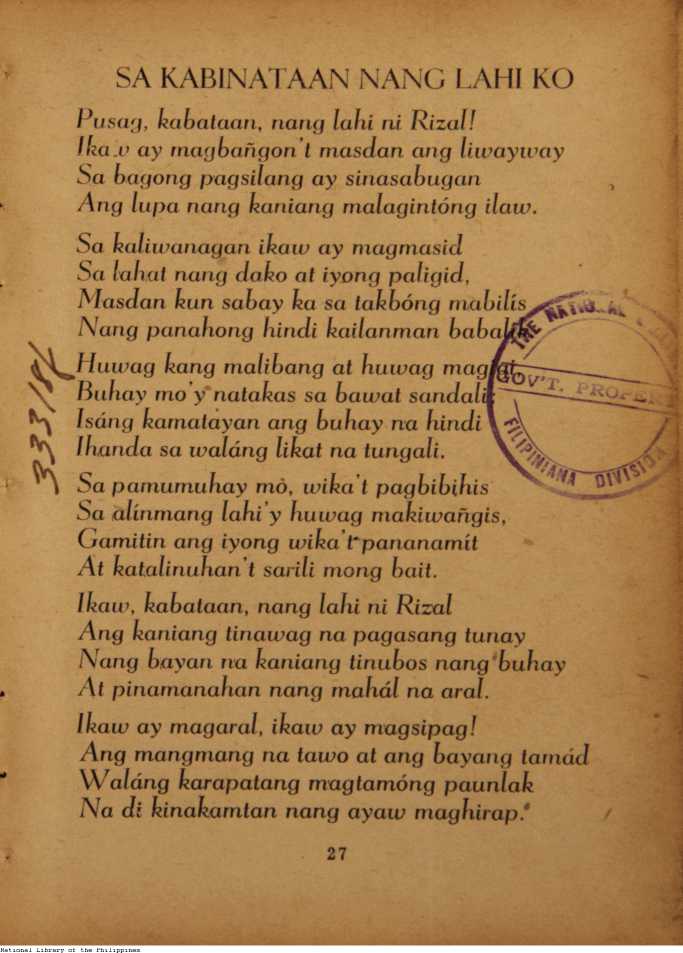 SA KABINATAAN NANG LAHI KO
Pusag, kabataan, nang lahi ni Rizal!
Ikaw ay magbañgon't masdan ang liwayway
Sa bagong pagsilang ay sinasabugan
Ang lupa nang kaniang malagintóng ilaw.
Sa kaliwanagan ikaw ay magmasid
Sa lahat nang dako at iyong paligid,
Masdan kun sabay ka sa takbóng mabilis
Nang panahong hindi kailanman babalik.
Huwag kang malibang at huwag
Buhay mo'y natakas sa bawat sandali:
Isáng kamatayan ang buhay na hindi
Ihanda sa waláng likat na tungali.
Sa pamumuhay mò, wika't pagbibihis
Sa alínmang lahi'y huwag makiwañgis,
Gamitin ang iyong wika't pananamít
At katalinuhan't sarili mong bait.
Ikaw, kabataan, nang lahi ni Rizal
Ang kaniang tinawag na pagasang tunay
Nang bayan na kaniang tinubos nang buhay
At pinamanahan nang mahál na aral.
Ikaw ay magaral, ikaw ay magsipag!
Ang mangmang na tawo at ang bayang tamád
Waláng karapatang magtamóng paunlak
Na di kinakamtan nang ayaw maghirap.
27
THE NATIONAL
GOV'T. PROPERTY
FILIPINIANA DIVISION
National Library of the Philippines